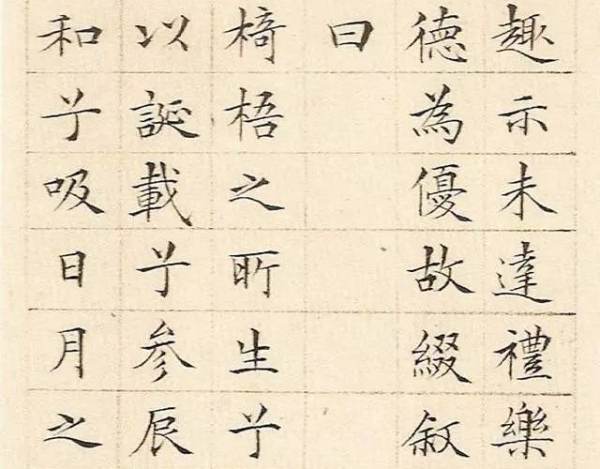 趣示未達禮樂
德為優故綴叙
曰
椅梧之所生兮
以誕載兮参辰
和兮吸日月之